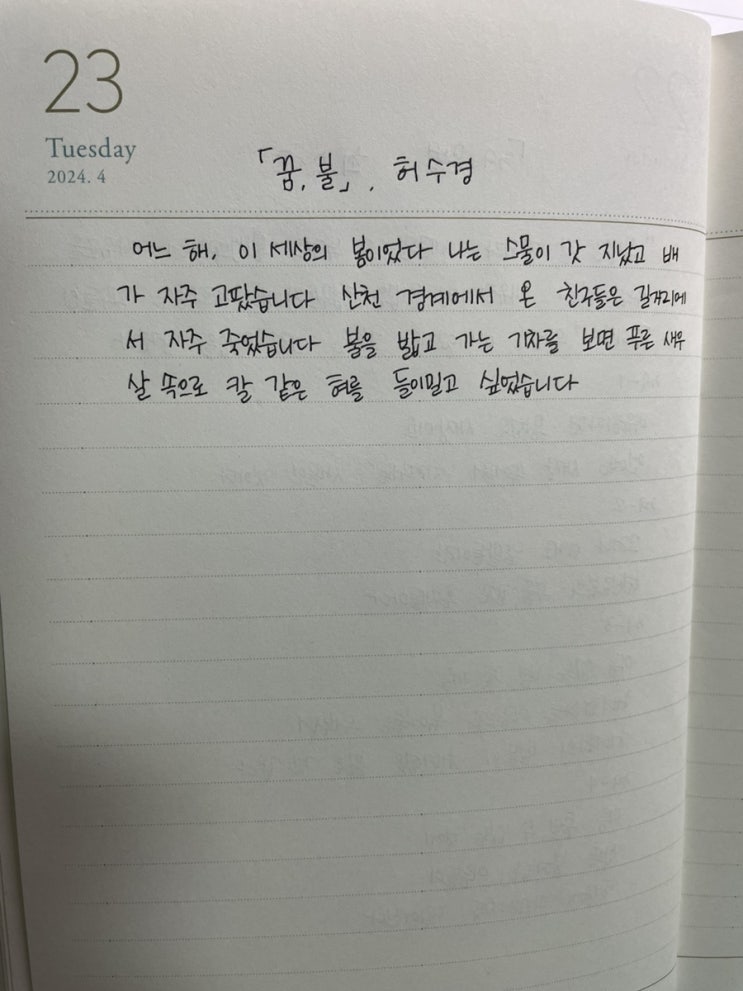 23
Tuesday
2024. 4
「꿈, 불」, 허수경
어느 해, 이 세상의 봄이었다 나는 스물이 갓 지났고 배
가 자주 고팠습니다 산천 경계에서 온 친구들은 길거리에
서 자주 죽었습니다 불을 밟고 가는 기차를 보면 푸른 새우
살 속으로 칼 같은 혀를 들이밀고 싶었습니다